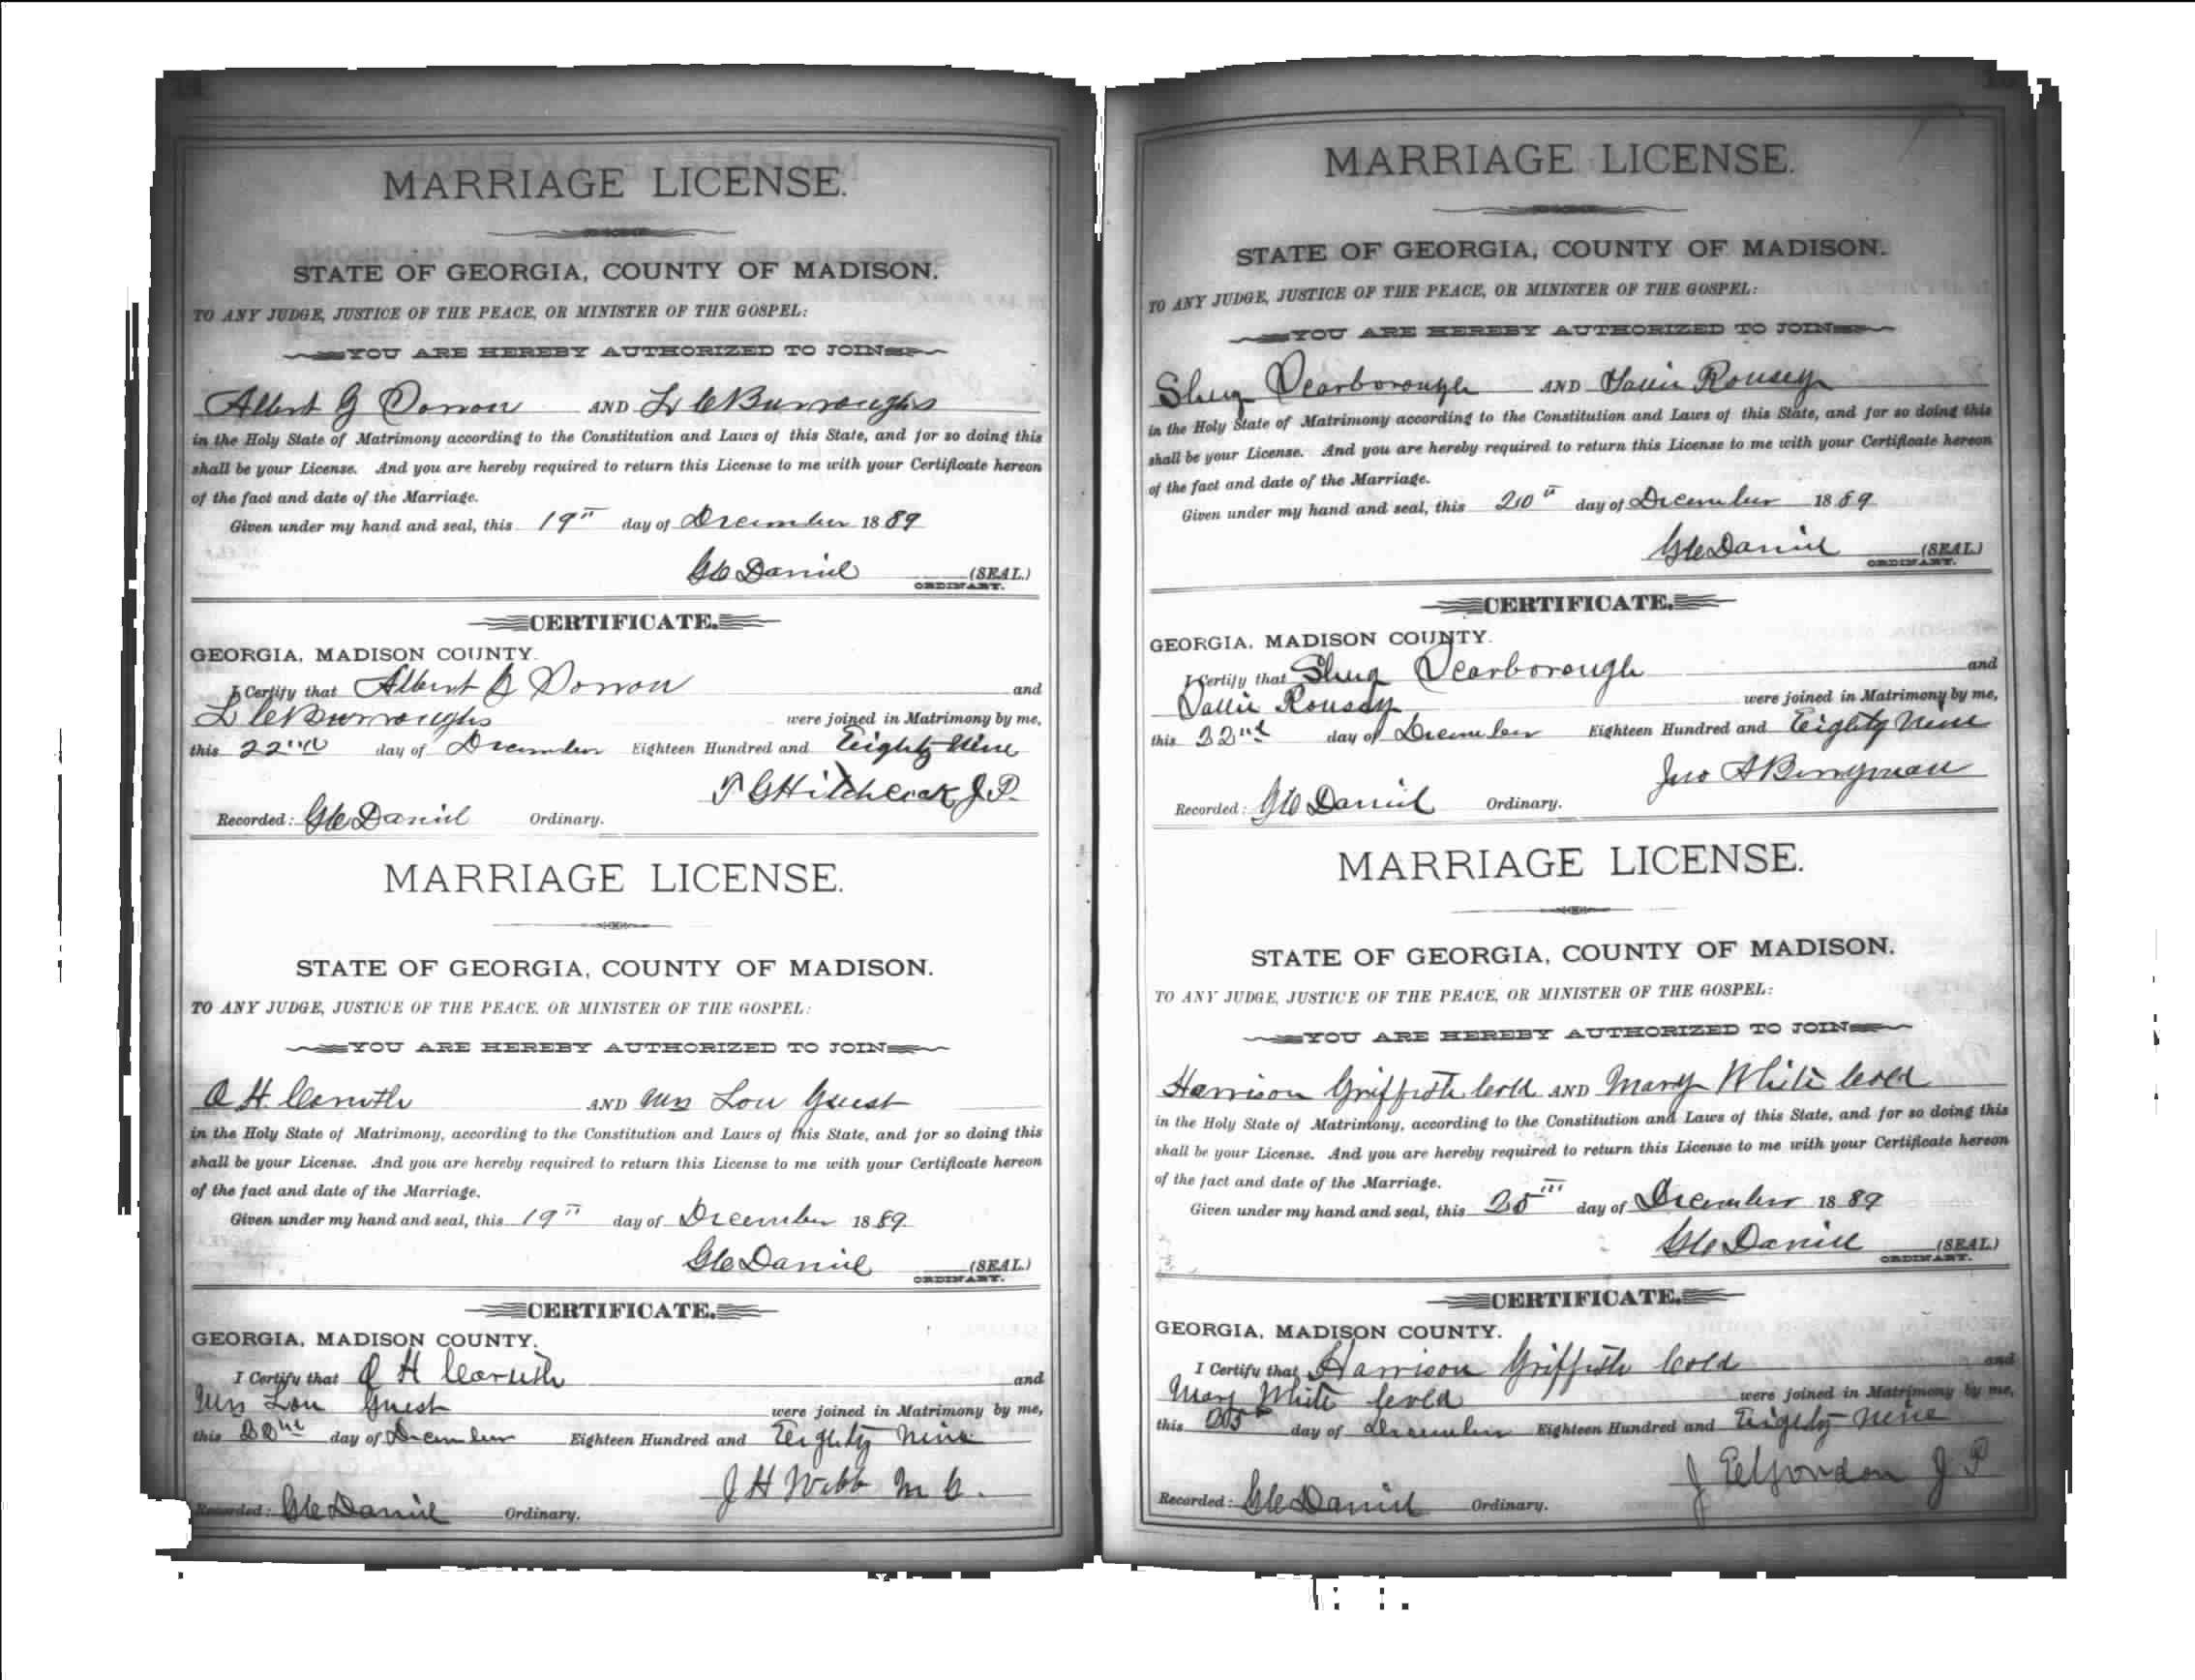 MARRIAGE LICENSE.
STATE OF GEORGIA, COUNTY OF MADISON.
TO ANY JUDGE, JUSTICE OF THE PEACE, OR MINISTER OF THE GOSPEL:
YOU ARE HEREBY AUTHORIZED TO JOIN
Albert G AND L C Burroughs
in the Holy State of Matrimony according to the Constitution and Laws of this State, and for so doing this
shall be your License. And you are hereby required to return this License to me with your Certificate hereon
of the fact and date of the Marriage.
Given under my hand and seal, this 19th day of December 1889
G C Daniel (SEAL.)
ORDINARY.
CERTIFICATE.
GEORGIA, MADISON COUNTY.
I Certify that Albert G and
L C Burroughs were joined in Matrimony by me,
this 22nd day of December Eighteen Hundred and Eighty Nine
G Hitchcock J.P.
Recorded: G C Daniel Ordinary.
MARRIAGE LICENSE.
STATE OF GEORGIA, COUNTY OF MADISON.
TO ANY JUDGE, JUSTICE OF THE PEACE, OR MINISTER OF THE GOSPEL:
YOU ARE HEREBY AUTHORIZED TO JOIN
H Caruth AND Mrs Lou Guest
in the Holy State of Matrimony, according to the Constitution and Laws of this State, and for so doing this
shall be your License. And you are hereby required to return this License to me with your Certificate hereon
of the fact and date of the Marriage.
Given under my hand and seal, this 19th day of December 1889
G C Daniel (SEAL.)
ORDINARY.
CERTIFICATE.
GEORGIA, MADISON COUNTY.
I Certify that H Caruth and
Mrs Lou Guest were joined in Matrimony by me,
this 22nd day of December Eighteen Hundred and Eighty Nine
J H Webb M G.
Recorded: G C Daniel Ordinary.
MARRIAGE LICENSE.
STATE OF GEORGIA, COUNTY OF MADISON.
TO ANY JUDGE, JUSTICE OF THE PEACE, OR MINISTER OF THE GOSPEL:
YOU ARE HEREBY AUTHORIZED TO JOIN
Shug Scarborough AND Rousey
in the Holy State of Matrimony according to the Constitution and Laws of this State, and for so doing this
shall be your License. And you are hereby required to return this License to me with your Certificate hereon
of the fact and date of the Marriage.
Given under my hand and seal, this 20th day of December 1889
G C Daniel (SEAL.)
ORDINARY.
CERTIFICATE.
GEORGIA, MADISON COUNTY.
I Certify that Shug Scarborough and
Rousey were joined in Matrimony by me,
this 22nd day of December Eighteen Hundred and Eighty Nine
Jno A Berryman
Recorded: G C Daniel Ordinary.
MARRIAGE LICENSE.
STATE OF GEORGIA, COUNTY OF MADISON.
TO ANY JUDGE, JUSTICE OF THE PEACE, OR MINISTER OF THE GOSPEL:
YOU ARE HEREBY AUTHORIZED TO JOIN
Harrison Griffith Cold AND Mary White Cold
in the Holy State of Matrimony, according to the Constitution and Laws of this State, and for so doing this
shall be your License. And you are hereby required to return this License to me with your Certificate hereon
of the fact and date of the Marriage.
Given under my hand and seal, this 25th day of December 1889
G C Daniel (SEAL.)
ORDINARY.
CERTIFICATE.
GEORGIA, MADISON COUNTY.
I Certify that Harrison Griffith Cold and
Mary White Cold were joined in Matrimony by me,
this 25 day of December Eighteen Hundred and Eighty Nine
J Gordon J P
Recorded: G C Daniel Ordinary.